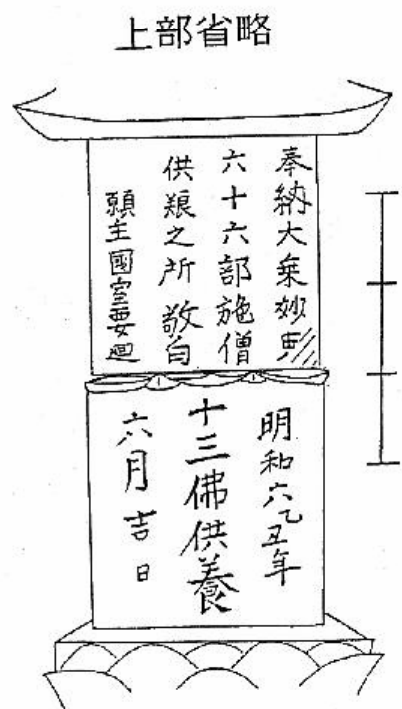 上部省略
奉納大乗妙典
六十六部施僧
供粮之所 敬白
願主國室要廻
明和六乙丑年
十三佛供養
六月吉日